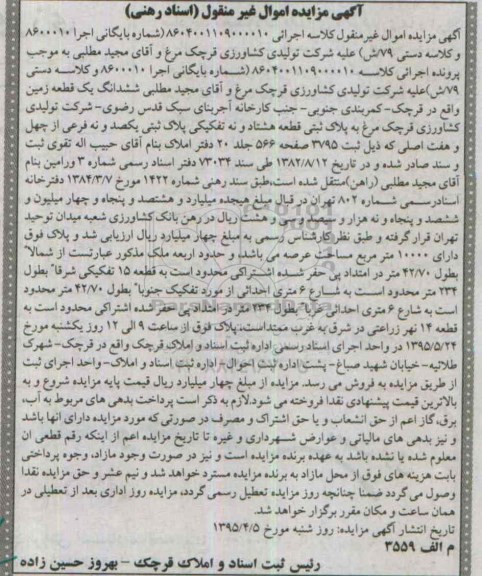 آگهی مزایده اموال غیر منقول (اسناد رهنی)
آگهی مزایده اموال غیرمنقول کلاسه اجرائی ۸۶۰۴۰۰۱۱۰۹۰۰۰۰۱۰ (شماره بایگانی اجرا ۸۶۰۰۰۱۰
و کلاسه دستی ۷۹/ش) علیه شرکت تولیدی کشاورزی قرچک مرغ و آقای مجید مطلبی به موجب
پرونده اجرائی کلاسه ۸۶۰۴۰۰۱۱۰۹۰۰۰۰۱۰ (شماره بایگانی اجرا ۸۶۰۰۰۱۰ و کلاسه دستی
۷۹/ش)علیه شرکت تولیدی کشاورزی قرچک مرغ و آقای مجید مطلبی ششدانگ یک قطعه زمین
واقع در قرچک- کمربندی جنوبی- جنب کارخانه آجربنای سبک قدس رضوی- شرکت تولیدی
کشاورزی قرچک مرغ به پلاک ثبتی قطعه هشتاد و نه تفکیکی پلاک ثبتی یکصد و نه فرعی از چهل
و هفت اصلی که ذیل ثبت ۳۷۹۵ صفحه ۵۶۶ جلد ۲۰ دفتر املاک بنام آقای حبیب اله تقوی ثبت
و سند صادر شده و در تاریخ ۱۳۸۲/۸/۱۲ طی سند ۷۳۰۳۴ دفتر اسناد رسمی شماره ۳ ورامین بنام
آقای مجید مطلبی (راهن)منتقل شده است،طبق سند رهنی شماره ۱۴۲۲ مورخ ۱۳۸۴/۳/۷ دفترخانه
اسنادرسمی شماره ۸۰۲ تهران در قبال مبلغ هیجده میلیارد و هشتصد و پنجاه و چهار میلیون و
ششصد و پنجاه و نه هزار و سیصد و سی و هشت ریال در رهن بانک کشاورزی شعبه میدان توحید
تهران قرار گرفته و طبق نظر کارشناس رسمی به مبلغ چهار میلیارد ریال ارزیابی شد و پلاک فوق
دارای ۱۰۰۰۰ متر مربع مساحت عرصه می باشد، و حدود اربعه ملک مذکور عبارتست از شمالاً
بطول ۴۲/۷۰ متر در امتداد پی حفر شده اشتراکی محدود است به قطعه ۱۵ تفکیکی شرقاً بطول
۲۳۴ متر محدود است به شارع ۶ متری احداثی از مورد تفکیک جنوباً بطول ۴۲/۷۰ متر محدود
است به شارع ۶ متری احداثی غرباً بطول ۲۳۴ متر در امتداد پی حفر شده اشتراکی محدود است به
قطعه ۱۴ نهر زراعتی در شرق به غرب ممتداست. پلاک فوق از ساعت ۹ الی ۱۲ روز یکشنبه مورخ
۱۳۹۵/۵/۲۴ در واحد اجرای اسنادرسمی اداره ثبت اسناد و املاک قرچک واقع در قرچک- شهرک
طلائیه- خیابان شهید صباغ- پشت اداره ثبت احوال- اداره ثبت اسناد و املاک- واحد اجرای ثبت
از طریق مزایده به فروش می رسد. مزایده از مبلغ چهار میلیارد ریال قیمت پایه مزایده شروع و به
بالاترین قیمت پیشنهادی نقدا فروخته می شود.لازم به ذکر است پرداخت بدهی های مربوط به آب،
برق، گاز اعم از حق انشعاب و یا حق اشتراک و مصرف در صورتی که مورد مزایده دارای انها باشد
و نیز بدهی های مالیاتی و عوارض شهرداری و غیره تا تاریخ مزایده اعم از اینکه رقم قطعی ان
معلوم شده یا نشده باشد به عهده برنده مزایده است و نیز در صورت وجود مازاد، وجوه پرداختی
بابت هزینه های فوق از محل مازاد به برنده مزایده مسترد خواهد شد و نیم عشر و حق مزایده نقدا
وصول می گردد ضمنا چنانچه روز مزایده تعطیل رسمی گردد، مزایده روز اداری بعد از تعطیلی در
همان ساعت و مکان مقرر برگزار خواهد شد.
تاریخ انتشار آگهی مزایده: روز شنبه مورخ ۱۳۹۵/۴/۵
م الف ۳۵۵۹
رئیس ثبت اسناد و املاک قرچک - بهروز حسین زاده